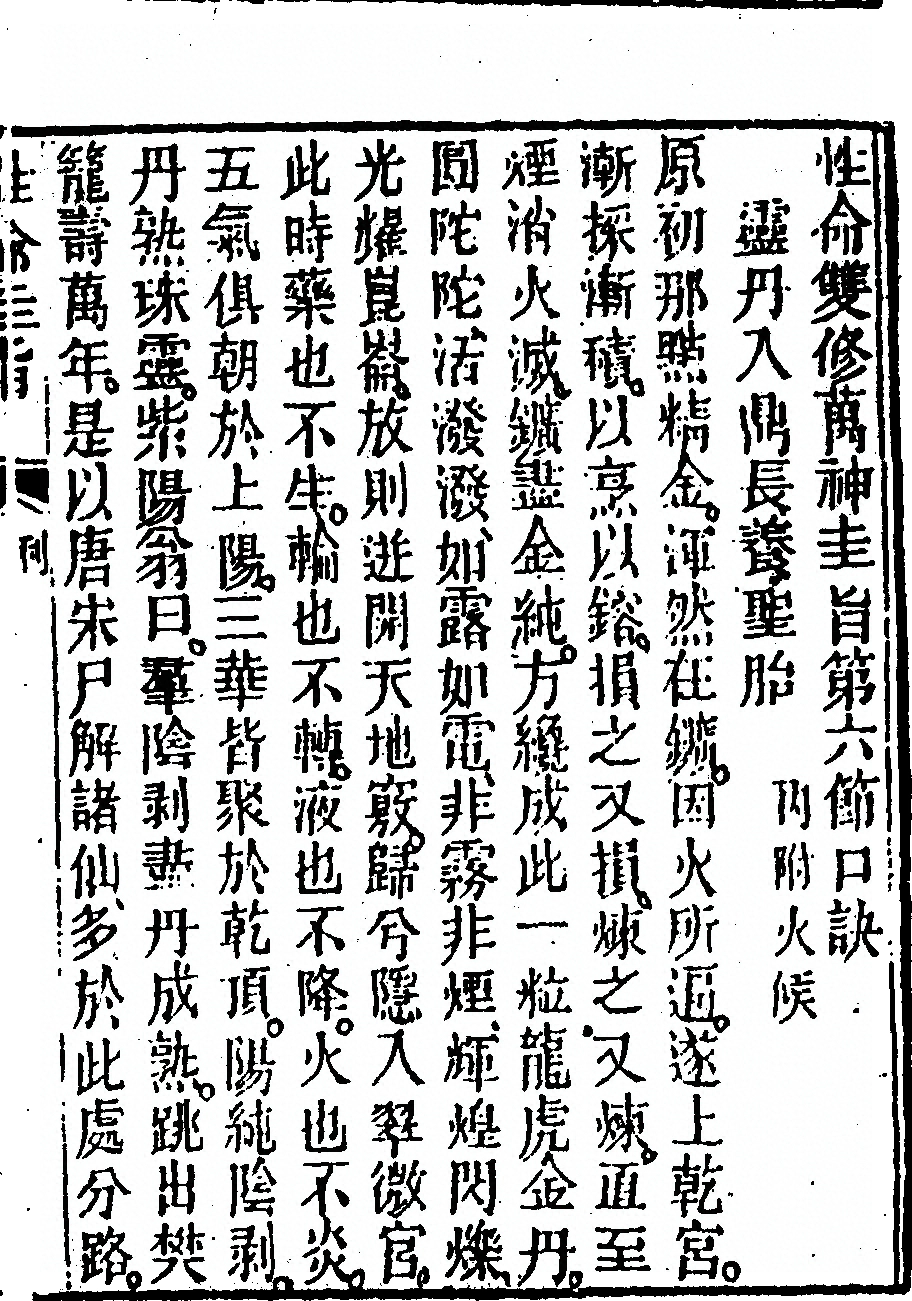 性命雙修萬神圭旨第六節口訣
靈丹入鼎長養聖胎 內附火候
原初那點精金。渾然在鑛。因火所逼。遂上乾宮。
漸採漸積。以烹以鎔。損之又損。煉之又煉。直至
煙消火滅。鑛盡金純。方纔成此一粒龍虎金丹。
圓陀陀活潑潑、如露如電、非霧非煙、輝煌閃爍、
光耀崑崙。放則迸開天地竅。歸兮隱入翠微宮。
此時藥也不生。輪也不轉。液也不降。火也不炎。
五氣俱朝於上陽。三華皆聚於乾頂。陽純陰剥。
丹熟珠靈。紫陽翁曰。羣陰剥盡丹成熟。跳出樊
籠壽萬年。是以唐宋尸解諸仙、多於此處分路。